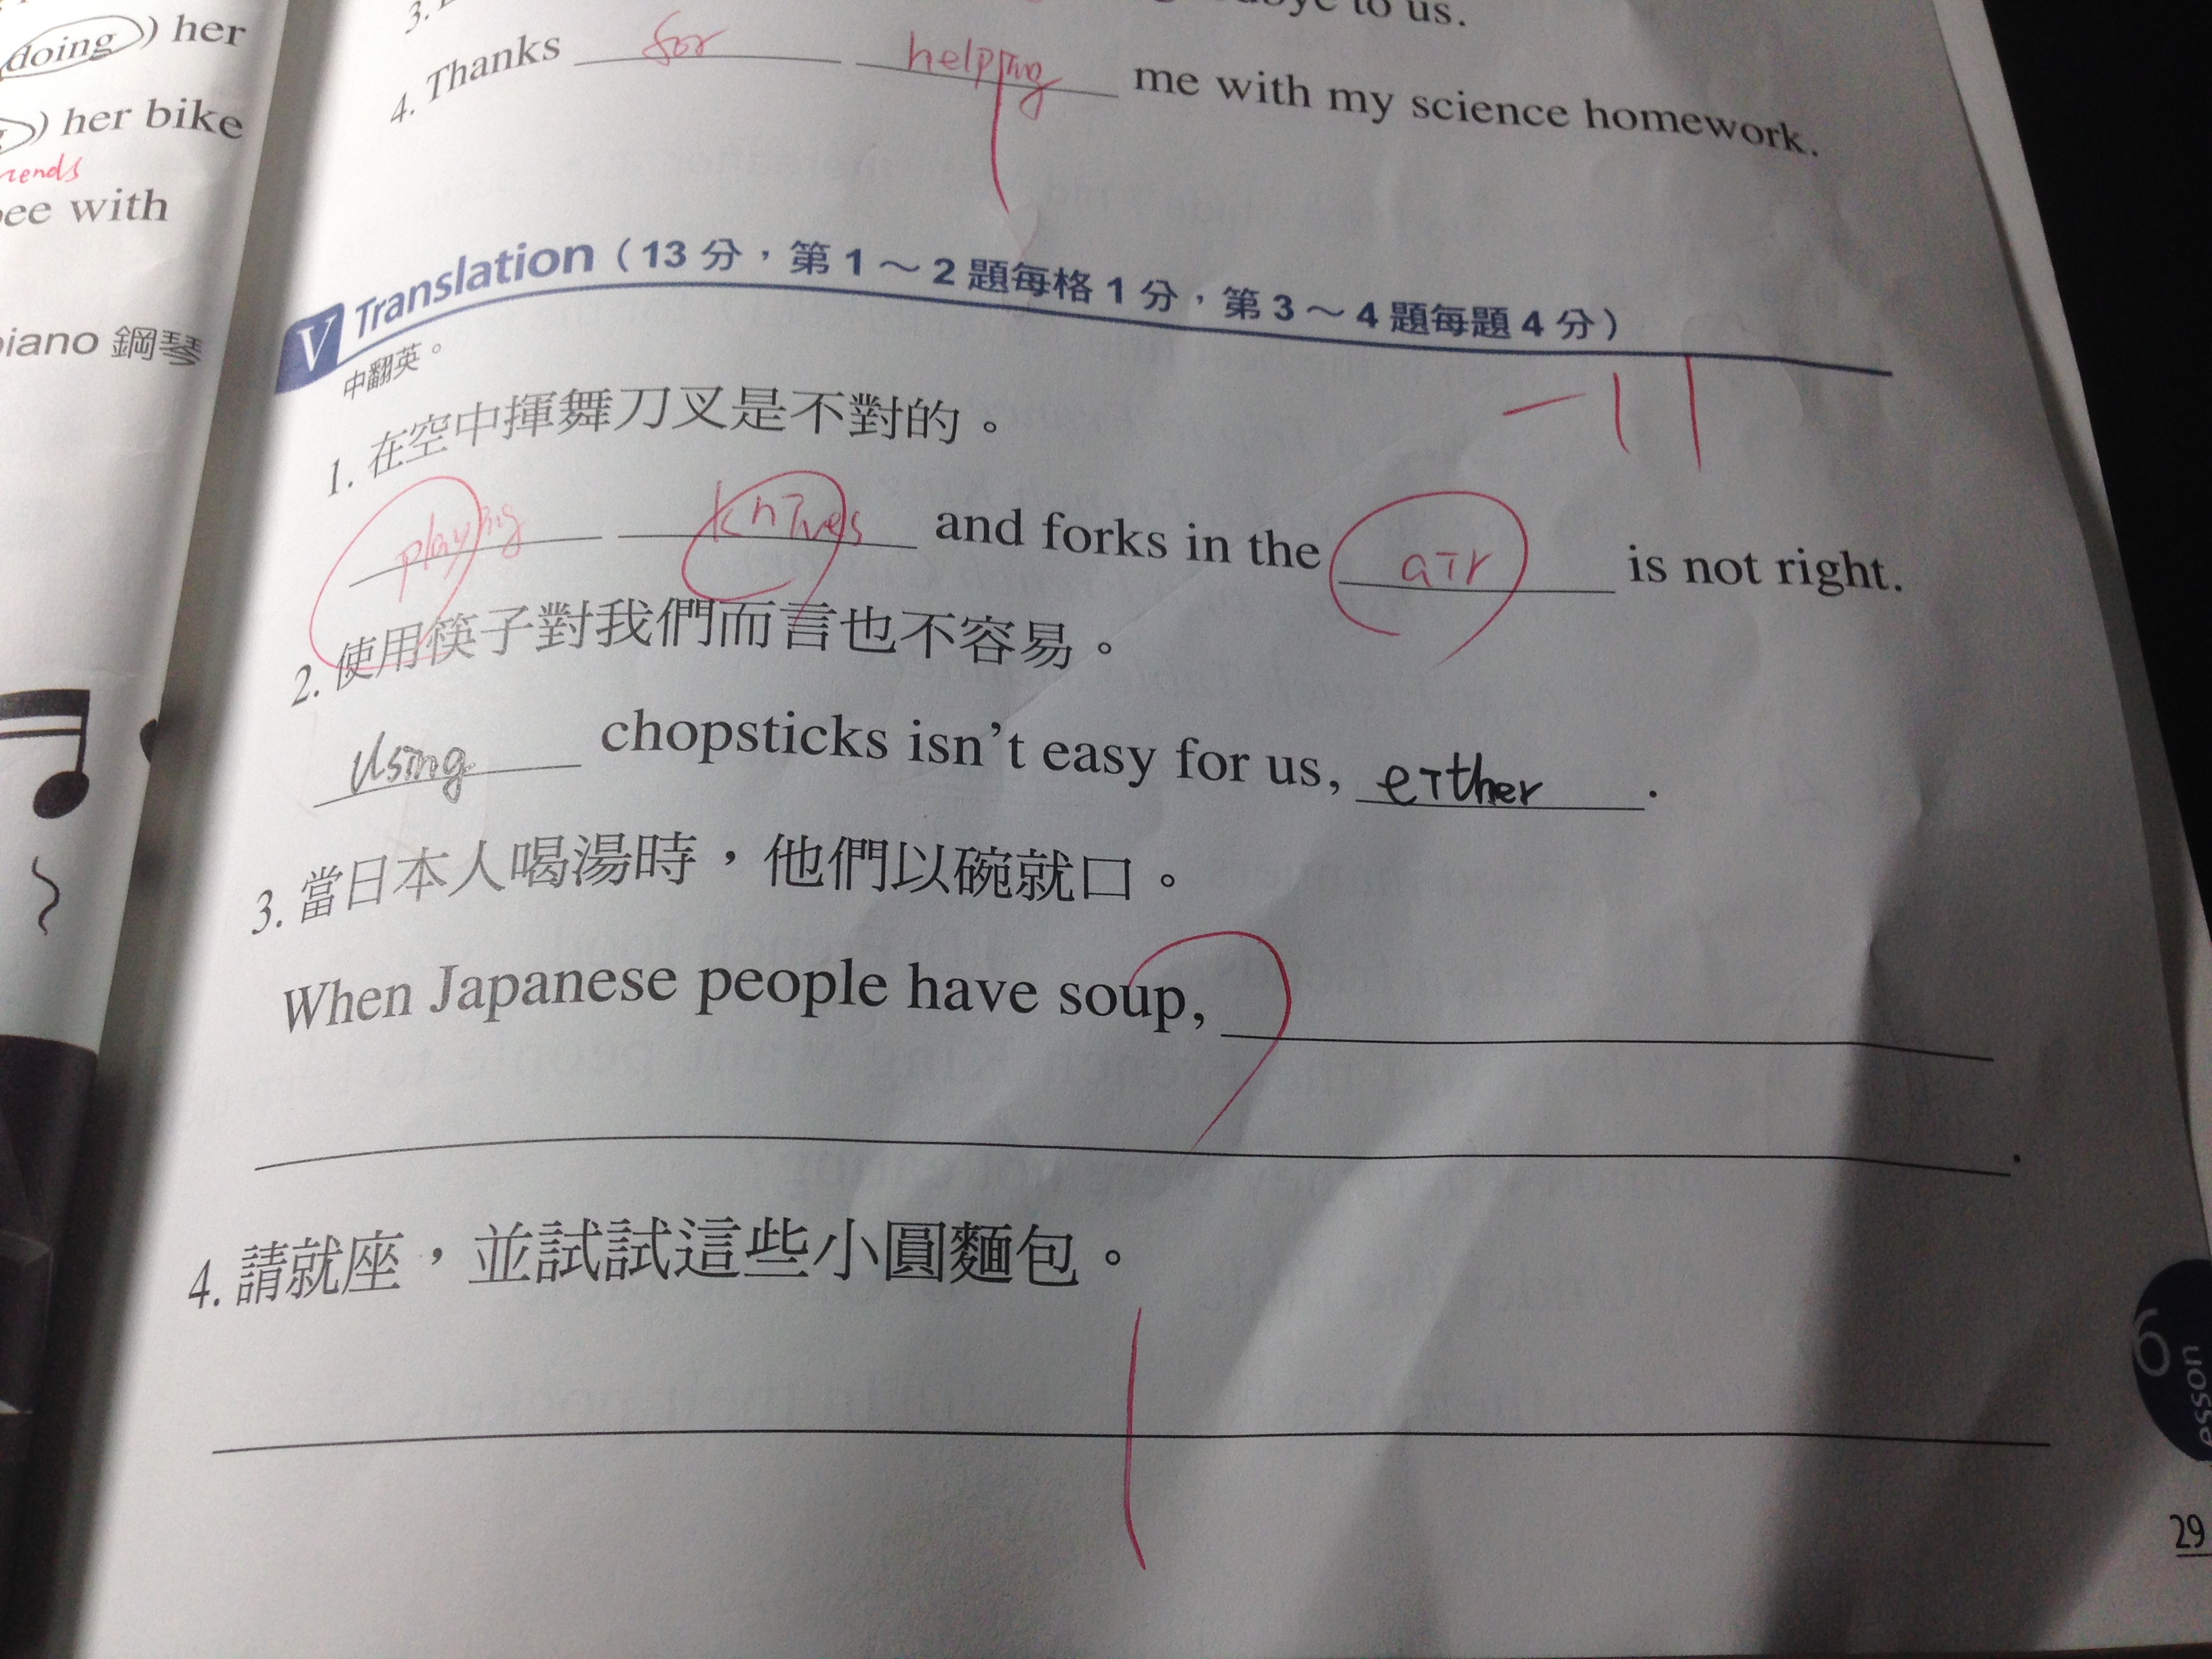 doing) her
) her bike
ee with
iano 鋼琴
3.
to us.
4. Thanks for helping me with my science homework.
V Translation(13 分,第 1～2 題每格 1 分,第 3～4 題每題 4 分)
中翻英。
-11
1. 在空中揮舞刀叉是不對的。
playing knives and forks in the air is not right.
2. 使用筷子對我們而言也不容易。
Using chopsticks isn't easy for us, either.
3. 當日本人喝湯時,他們以碗就口。
When Japanese people have soup,
.
4. 請就座,並試試這些小圓麵包。
6
esson
29